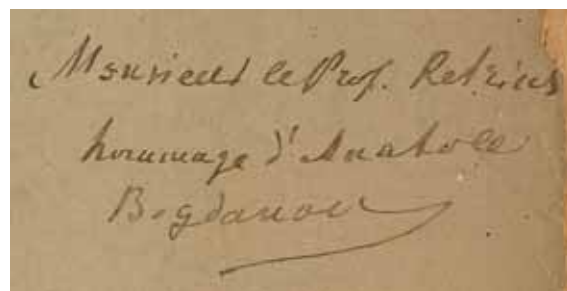 Monsieur le Prof. Retzius
hommage d'Anatole
Bogdanow